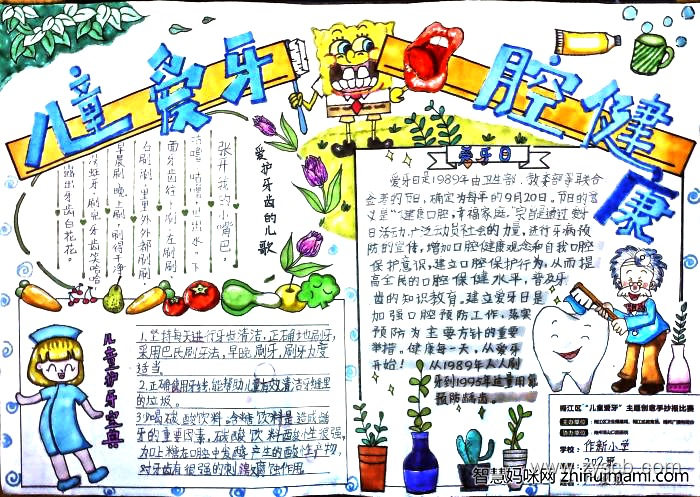 儿童爱牙
口腔健康
爱护牙齿的儿歌
张开花的小嘴巴,
面牙齿往下刷,左刷刷
右刷刷,里里外外都刷刷,
早晨刷,晚上刷,刷得干净
没蛀牙,刷完牙齿笑哈哈
露出牙齿白花花。
爱牙日
爱牙日是1989年由卫生部、教委部等联合
签署的节日,确定为每年的9月20日。节日的意
义是"健康口腔,幸福家庭。"宗旨是通过爱牙
日活动,广泛动员社会的力量,进行牙病预
防的宣传,增加口腔健康观念和自我口腔
保护意识,建立口腔保护行为,从而提
高全民的口腔保健水平,普及牙
齿的知识教育,建立爱牙日是
加强口腔预防工作,落实
预防为主要方针的重要
举措。健康每一天,从爱牙
开始! 从1989年人人刷
牙到1995年适量用氟
预防龋齿。
儿童护牙宝典
1.坚持每天进行牙齿清洁,正确地刷牙,
采用巴氏刷牙法,早晚刷牙,刷牙力度
适当。
2.正确使用牙线,能帮助儿童有效清洁牙缝里
的垃圾。
3.少喝碳酸饮料,含糖饮料是造成龋
牙的重要因素,碳酸饮料酸性很强,
加上糖在口腔中发酵产生的酸性产物,
对牙齿有很强的刺激腐蚀作用。
"儿童爱牙"主题创意手抄报比赛
主办单位
协办单位
学校:作新小学
202班
智慧妈咪网 zhihuimami.com